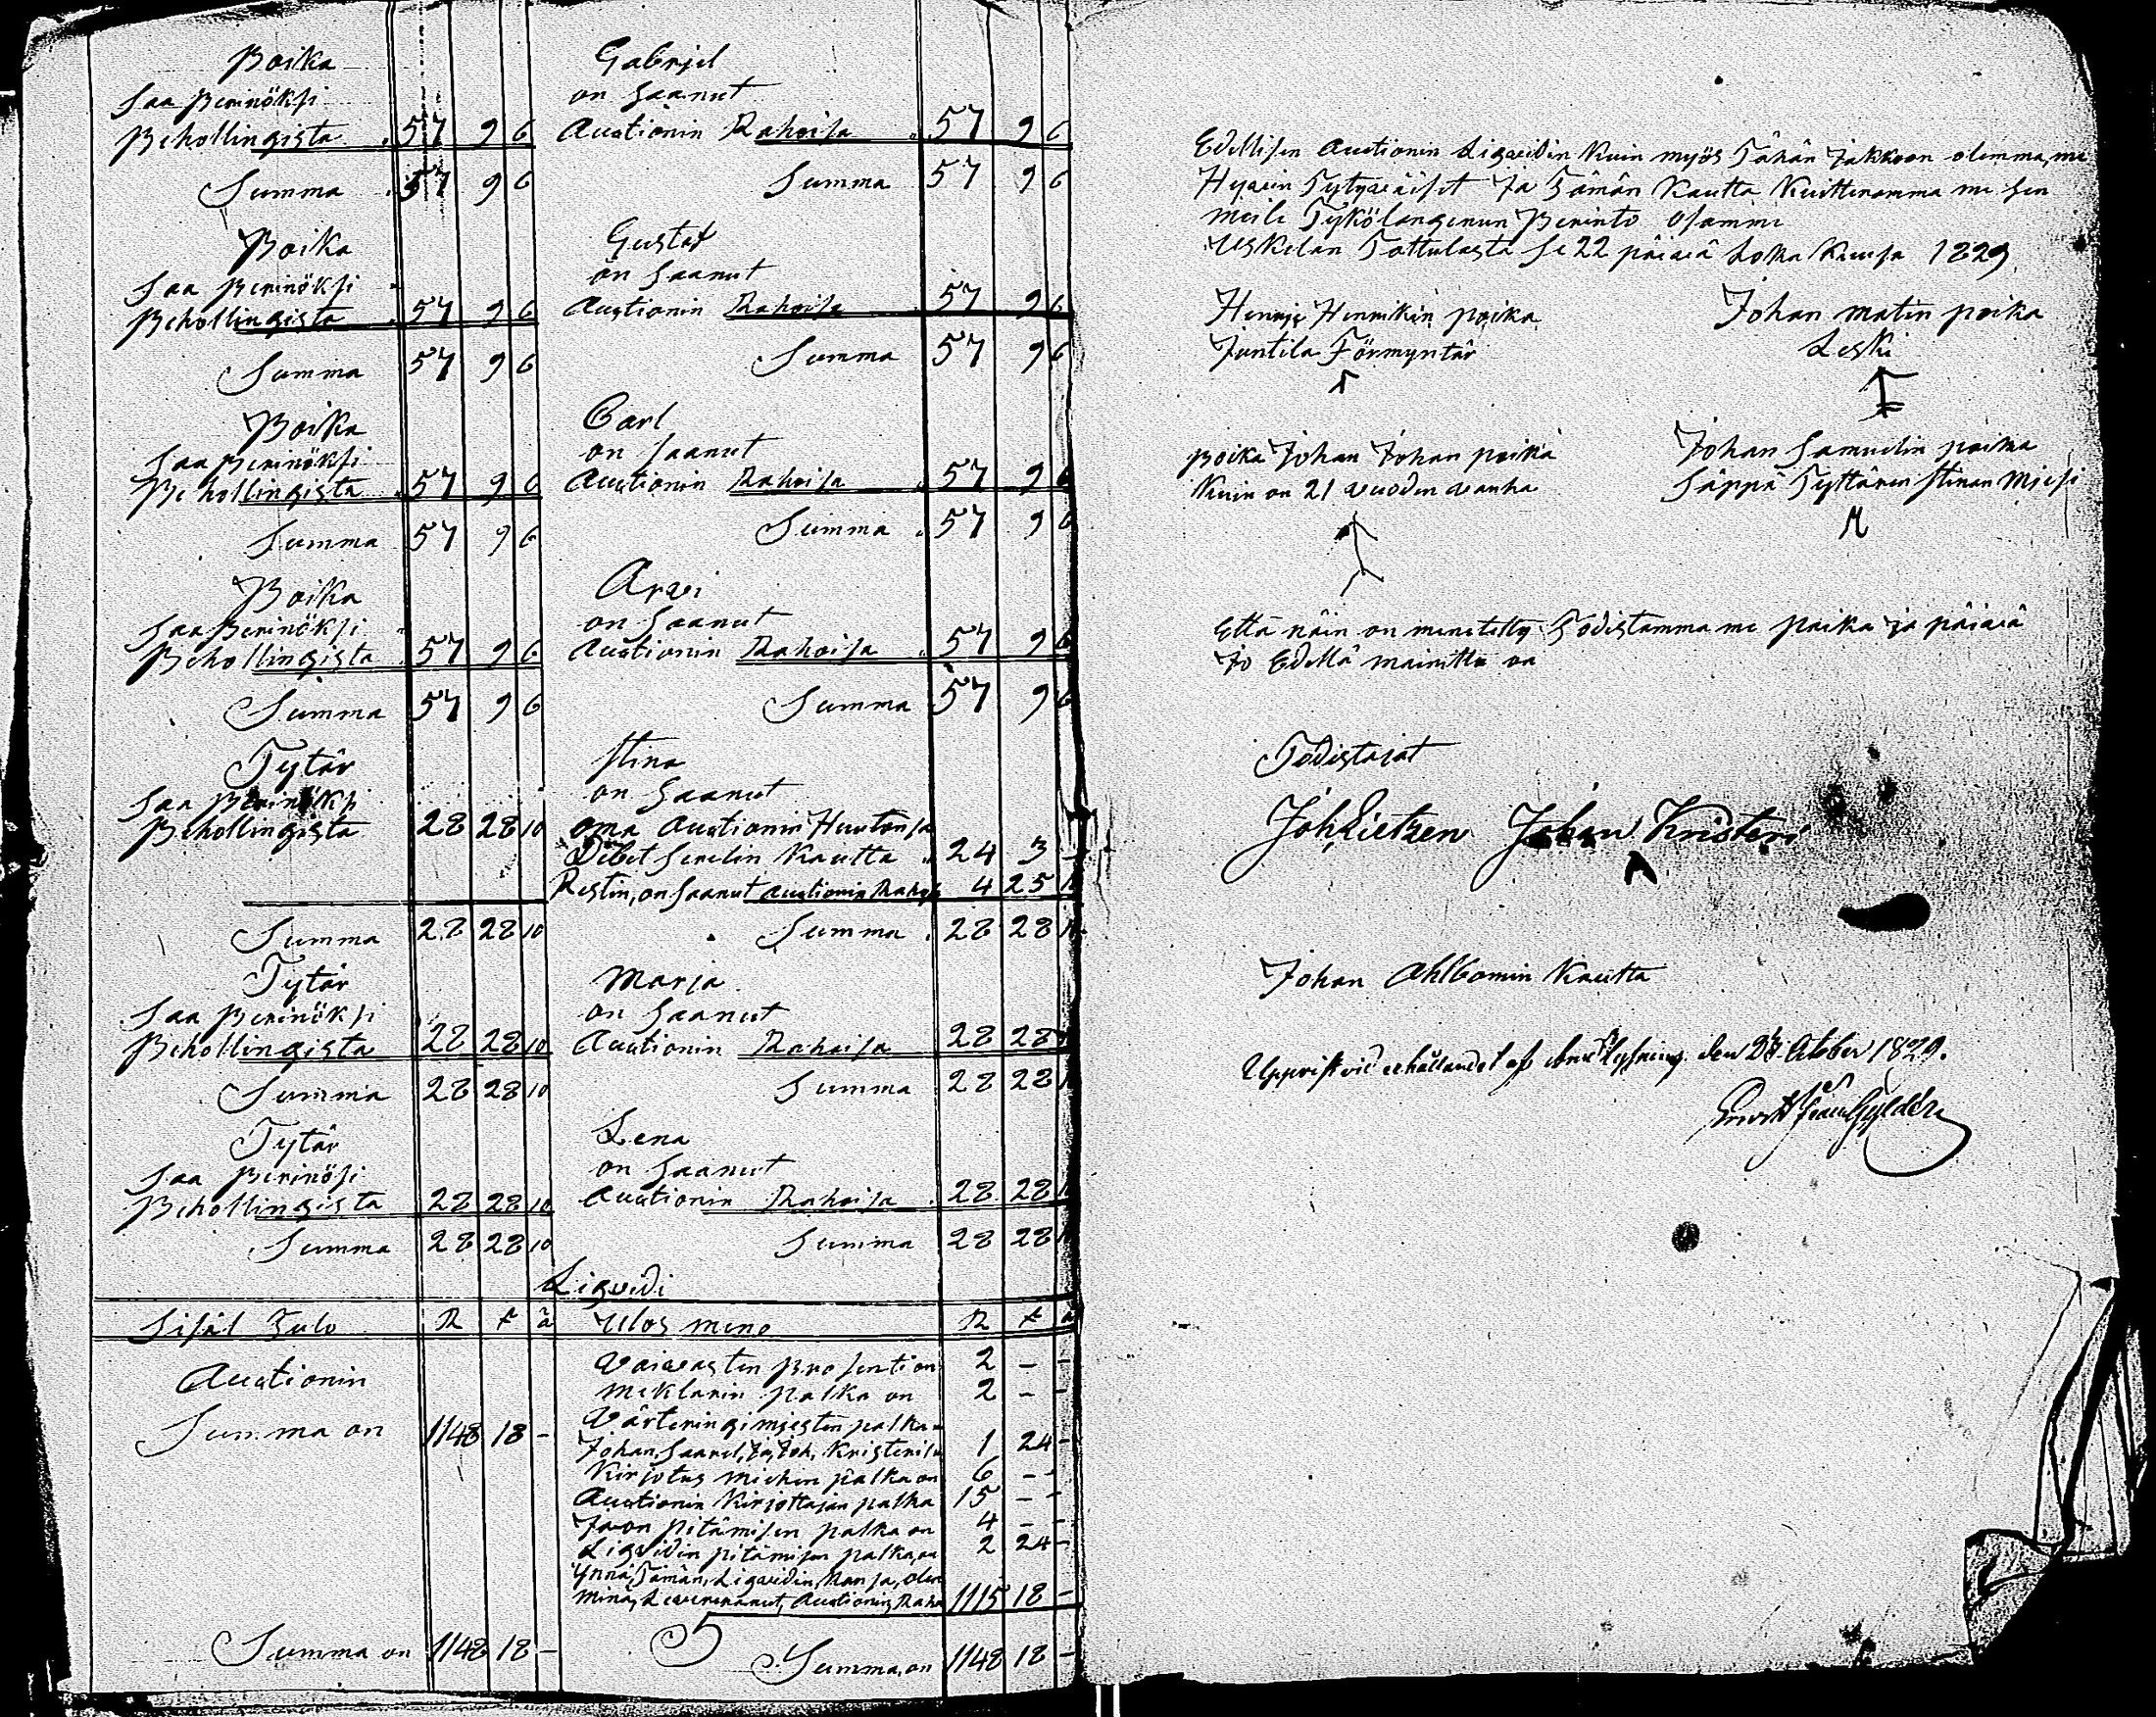 Poika
Saa Perinöksi
Behollingista 57 9 6
Summa 57 9 6
Gabrjel
on Saanut
Auctionin Rahoisa 57 9 6
Summa 57 9 6
Poika
Saa Perinöksi
Behollingista 57 9 6
Summa 57 9 6
Gustaf
on Saanut
Auctionin Rahoisa 57 9 6
Summa 57 9 6
Poika
Saa Perinöksi
Behollingista 57 9 6
Summa 57 9 6
Carl
on Saanut
Auctionin Rahoisa 57 9 6
Summa 57 9 6
Poika
Saa Perinöksi
Behollingista 57 9 6
Summa 57 9 6
Arvi
on Saanut
Auctionin Rahoisa 57 9 6
Summa 57 9 6
Tytär
Saa Perinöksi
Behollingista 28 28 10
Summa 28 28 10
Stina
on Saanut
oma Auctionin Huutonsa
Debet Serelin Kautta 24 3 –
Restin, on Saanut Auctionin 4 25
Summa 28 28
Tytär
Saa Perinöksi
Behollingista 28 28 10
Summa 28 28 10
Marja
on Saanut
Auctionin Rahoisa 28 28
Summa 28 28
Tytär
Saa Perinösi
Behollingista 28 28 10
Summa 28 28 10
Lena
on Saanut
Auctionin Rahoisa 28 28
Summa 28 28
Liqvidi
Sisäl Tulo R k ä
Ulos meno R k
Auctionin
Summa on 1148 18 –
Summa on 1148 18 –
Vaivasten Prosenti on 2 – –
meklarin palka on 2 – –
Värteringimiesten palka
Johan Saarel, Ja Joh, Kristerilä 1 24 –
Kirjotus miehen palka on 6 – –
Auctionin Kirjottajan palka 15 – –
Jaon pitämisen palka on 4 – –
Liqvidin pitämisen palka, on 2 24 –
Ynnä, Tämän, Liqvidin, Kansa, olen
minä, Leverera­nut, Auctionin, Raha 1115 18 –
Summa, on 1148 18 –
Edellisen Auctionin Liqvidin Kuin myös Tähän Jakkoon olemma, me
Hyvin Tytyväiset Ja Tämän Kautta Kuittenamma me Sen
meile Tykölangenun Perinto Osamme
Uskelan Tottulasta Se 22 päivä Loka Kuusa 1829
Henrji Henrikin poika
Juntila Förmyntär
Johan matin poika
Leski
Poika Johan Johan poika
Kuin on 21 vuoden vanha
Johan Samuelin poika
Säppä Tyttären Stinan Miesi
M
Että näin on menetetty Todistamma me paika ja päivä
Jo Edellä mainittu on
Todistajat
Joh Lietzen Johan Kristeri
A
Johan Ahlbomin Kautta
den October 1829.